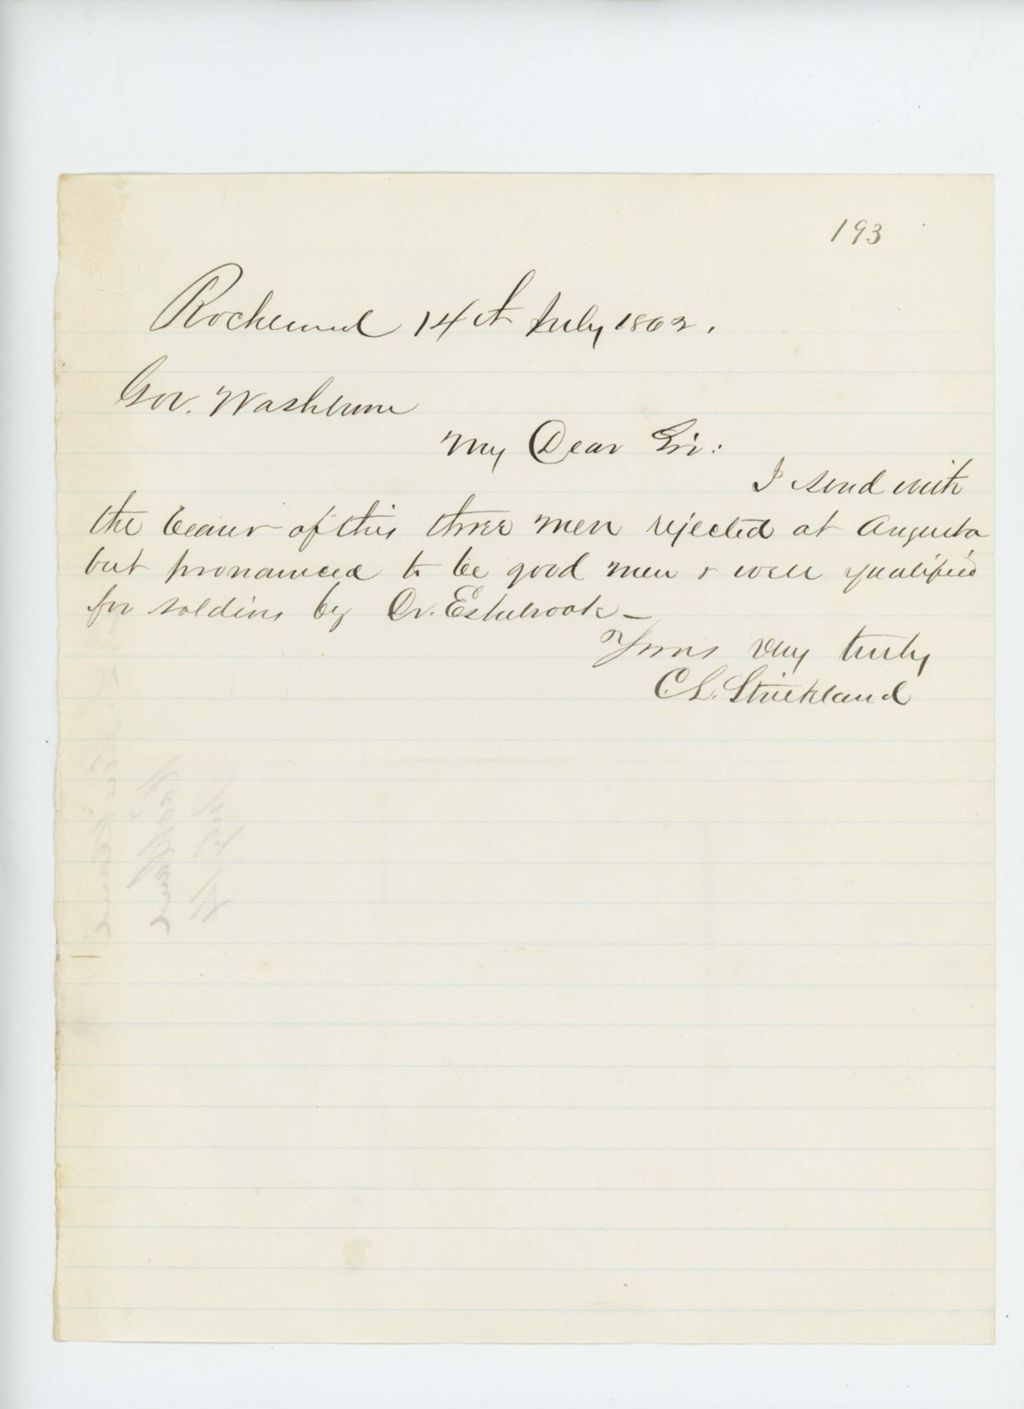 193
Rockland 14th July 1862.
Gov. Washburn
My Dear Sir:
I send with
the bearer of this three men rejected at Augusta
but pronounced to be good men & well qualified
for soldiers by Dr. Estabrook —
Yours very truly
C. L. Strickland